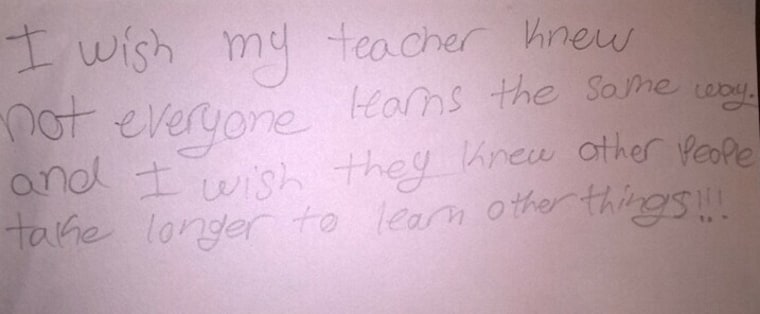 I wish my teacher knew
not everyone learns the same way.
and I wish they knew other people
take longer to learn other things!!!